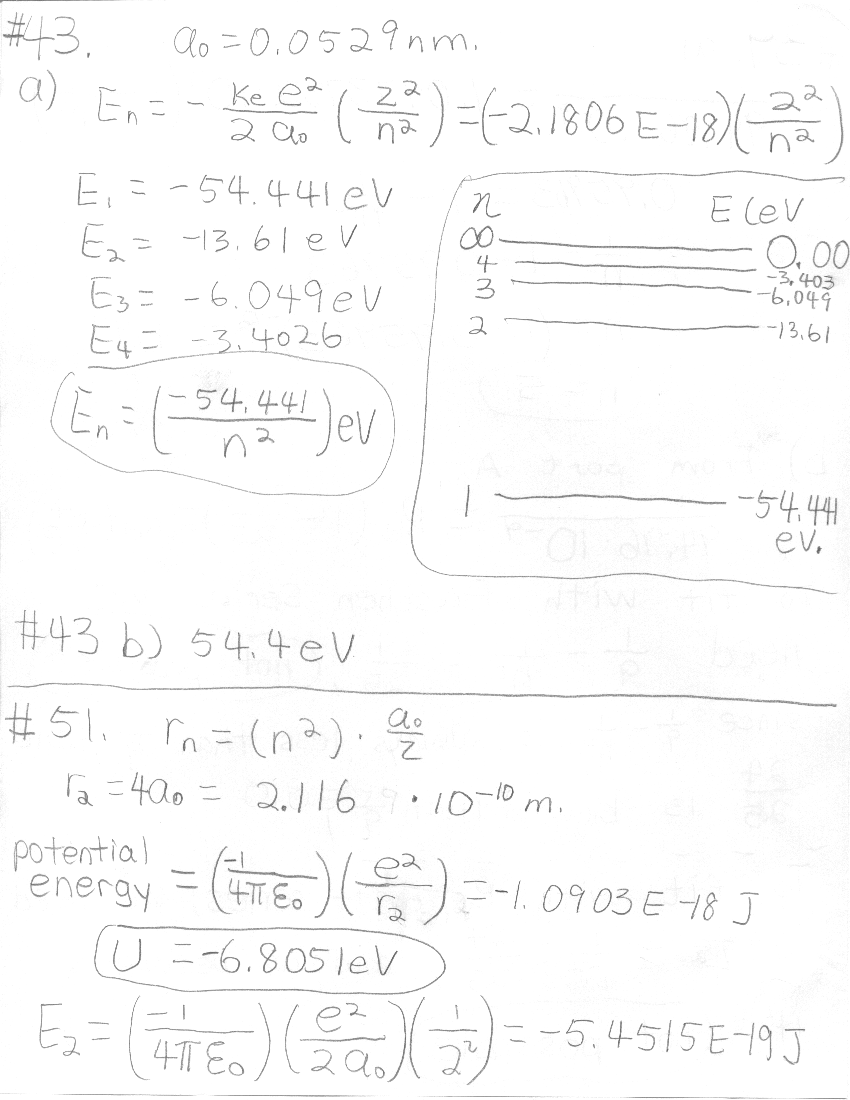 #43. a₀ = 0.0529 nm.
a) Eₙ = - Ke e² / 2 a₀ ( Z² / n² ) = (-2.1806 E-18)( 2² / n² )
E₁ = -54.441 eV
E₂ = -13.61 eV
E₃ = -6.049 eV
E₄ = -3.4026
Eₙ = ( -54.441 / n² ) eV
n E (eV
∞ 0.00
4 -3.403
3 -6.049
2 -13.61
1 -54.441
eV.
#43 b) 54.4 eV
#51. rₙ = (n²) · a₀ / Z
r₂ = 4a₀ = 2.116 · 10⁻¹⁰ m.
potential
energy = ( -1 / 4πε₀ ) ( e² / r₂ ) = -1.0903 E-18 J
U = -6.8051 eV
E₂ = ( -1 / 4πε₀ ) ( e² / 2a₀ ) ( 1 / 2² ) = -5.4515 E-19 J